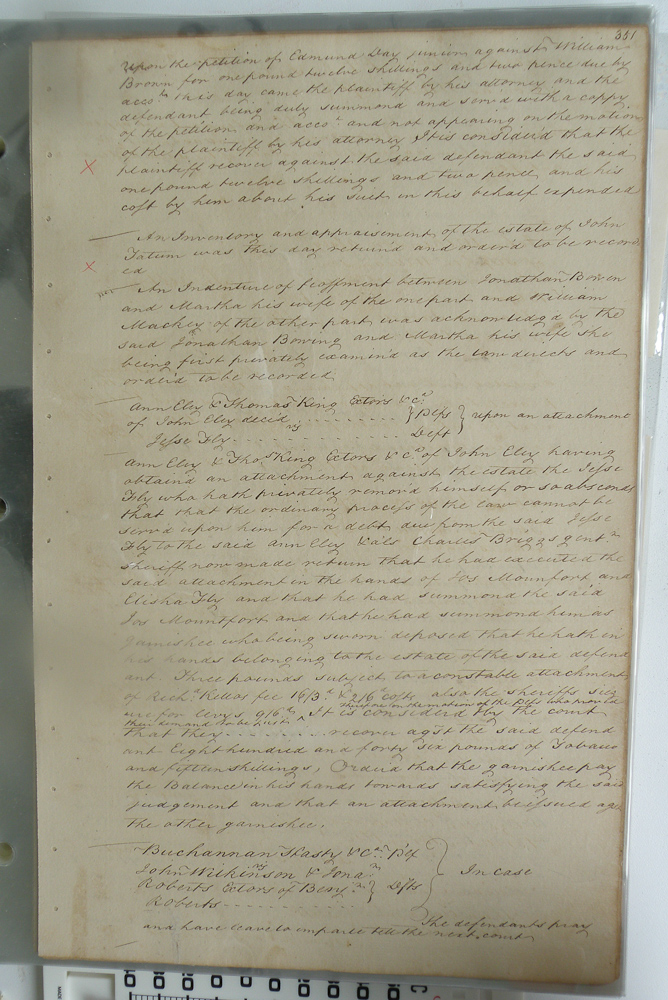 331
Upon the petition of Edmund Day junior against William
Brown for one pound twelve shillings and two pence due by
acco.ts this day came the plaintiff by his attorney and the
defendant being duly summond and servd with a coppy
of the petition and acco.t and not appearing on the motion
of the plaintiff by his attorney It is considerd that the
plaintiff recover against the said defendant the said
one pound twelve shillings and two pence and his
cost by him about his suit in this behalf expended
An Inventory and appraisement of the estate of John
Tatum was this day returnd and orderd to be record
ed
An Indenture of feoffment between Jonathan Bowen
and Martha his wife of the one part and William
Mackey of the other part was acknowledgd by the
said Jonathan Bowing and Martha his wife she
being first privately examind as the law directs and
orderd to be recorded
Ann Eley & Thomas King Exctors &c.a
of John Eley decd } Plfs } upon an attachment
vs
Jesse Fly Deft
Ann Eley & Tho.s King Exctors &c.a of John Eley having
obtaind an attachment against the estate the Jesse
Fly who hath privately removd himself or so absconds
that that the ordinary process of the law cannot be
servd upon him for a debt due from the said Jesse
Fly to the said Ann Eley &als Charles Briggs gent.n
sheriff now made return that he had executed the
said attachment in the hands of Jos Mounfort and
Elisha Fly and that he had summond the said
Jos Mountfort and that he had summond him as
garnishee who being sworn deposed that he hath in
his hands belonging to the estate of the said defend
ant Three pounds subject to a constable attachment
of Rich.d Kellos fee 16/3.d & 2/6.d costs also the sheriffs
ure for levys 9/6.d therefore on the motion of the Plfs who proved
their demand to be just It is considerd by the court
that they recover agst the said defend
ant Eight hundred and forty six pounds of Tobacco
and fifteen shillings, Orderd that the garnishee pay
the Balance in his hands towards satisfying the said
judgement and that an attachment be issued ags
the other garnishee.
Buchannan Hasty &C.o Plf
vs
John Wilkinson & Jona.n
Roberts Exctors of Benj.n } Defts } In case
Roberts
The defendants pray
and have leave to imparle till the next court